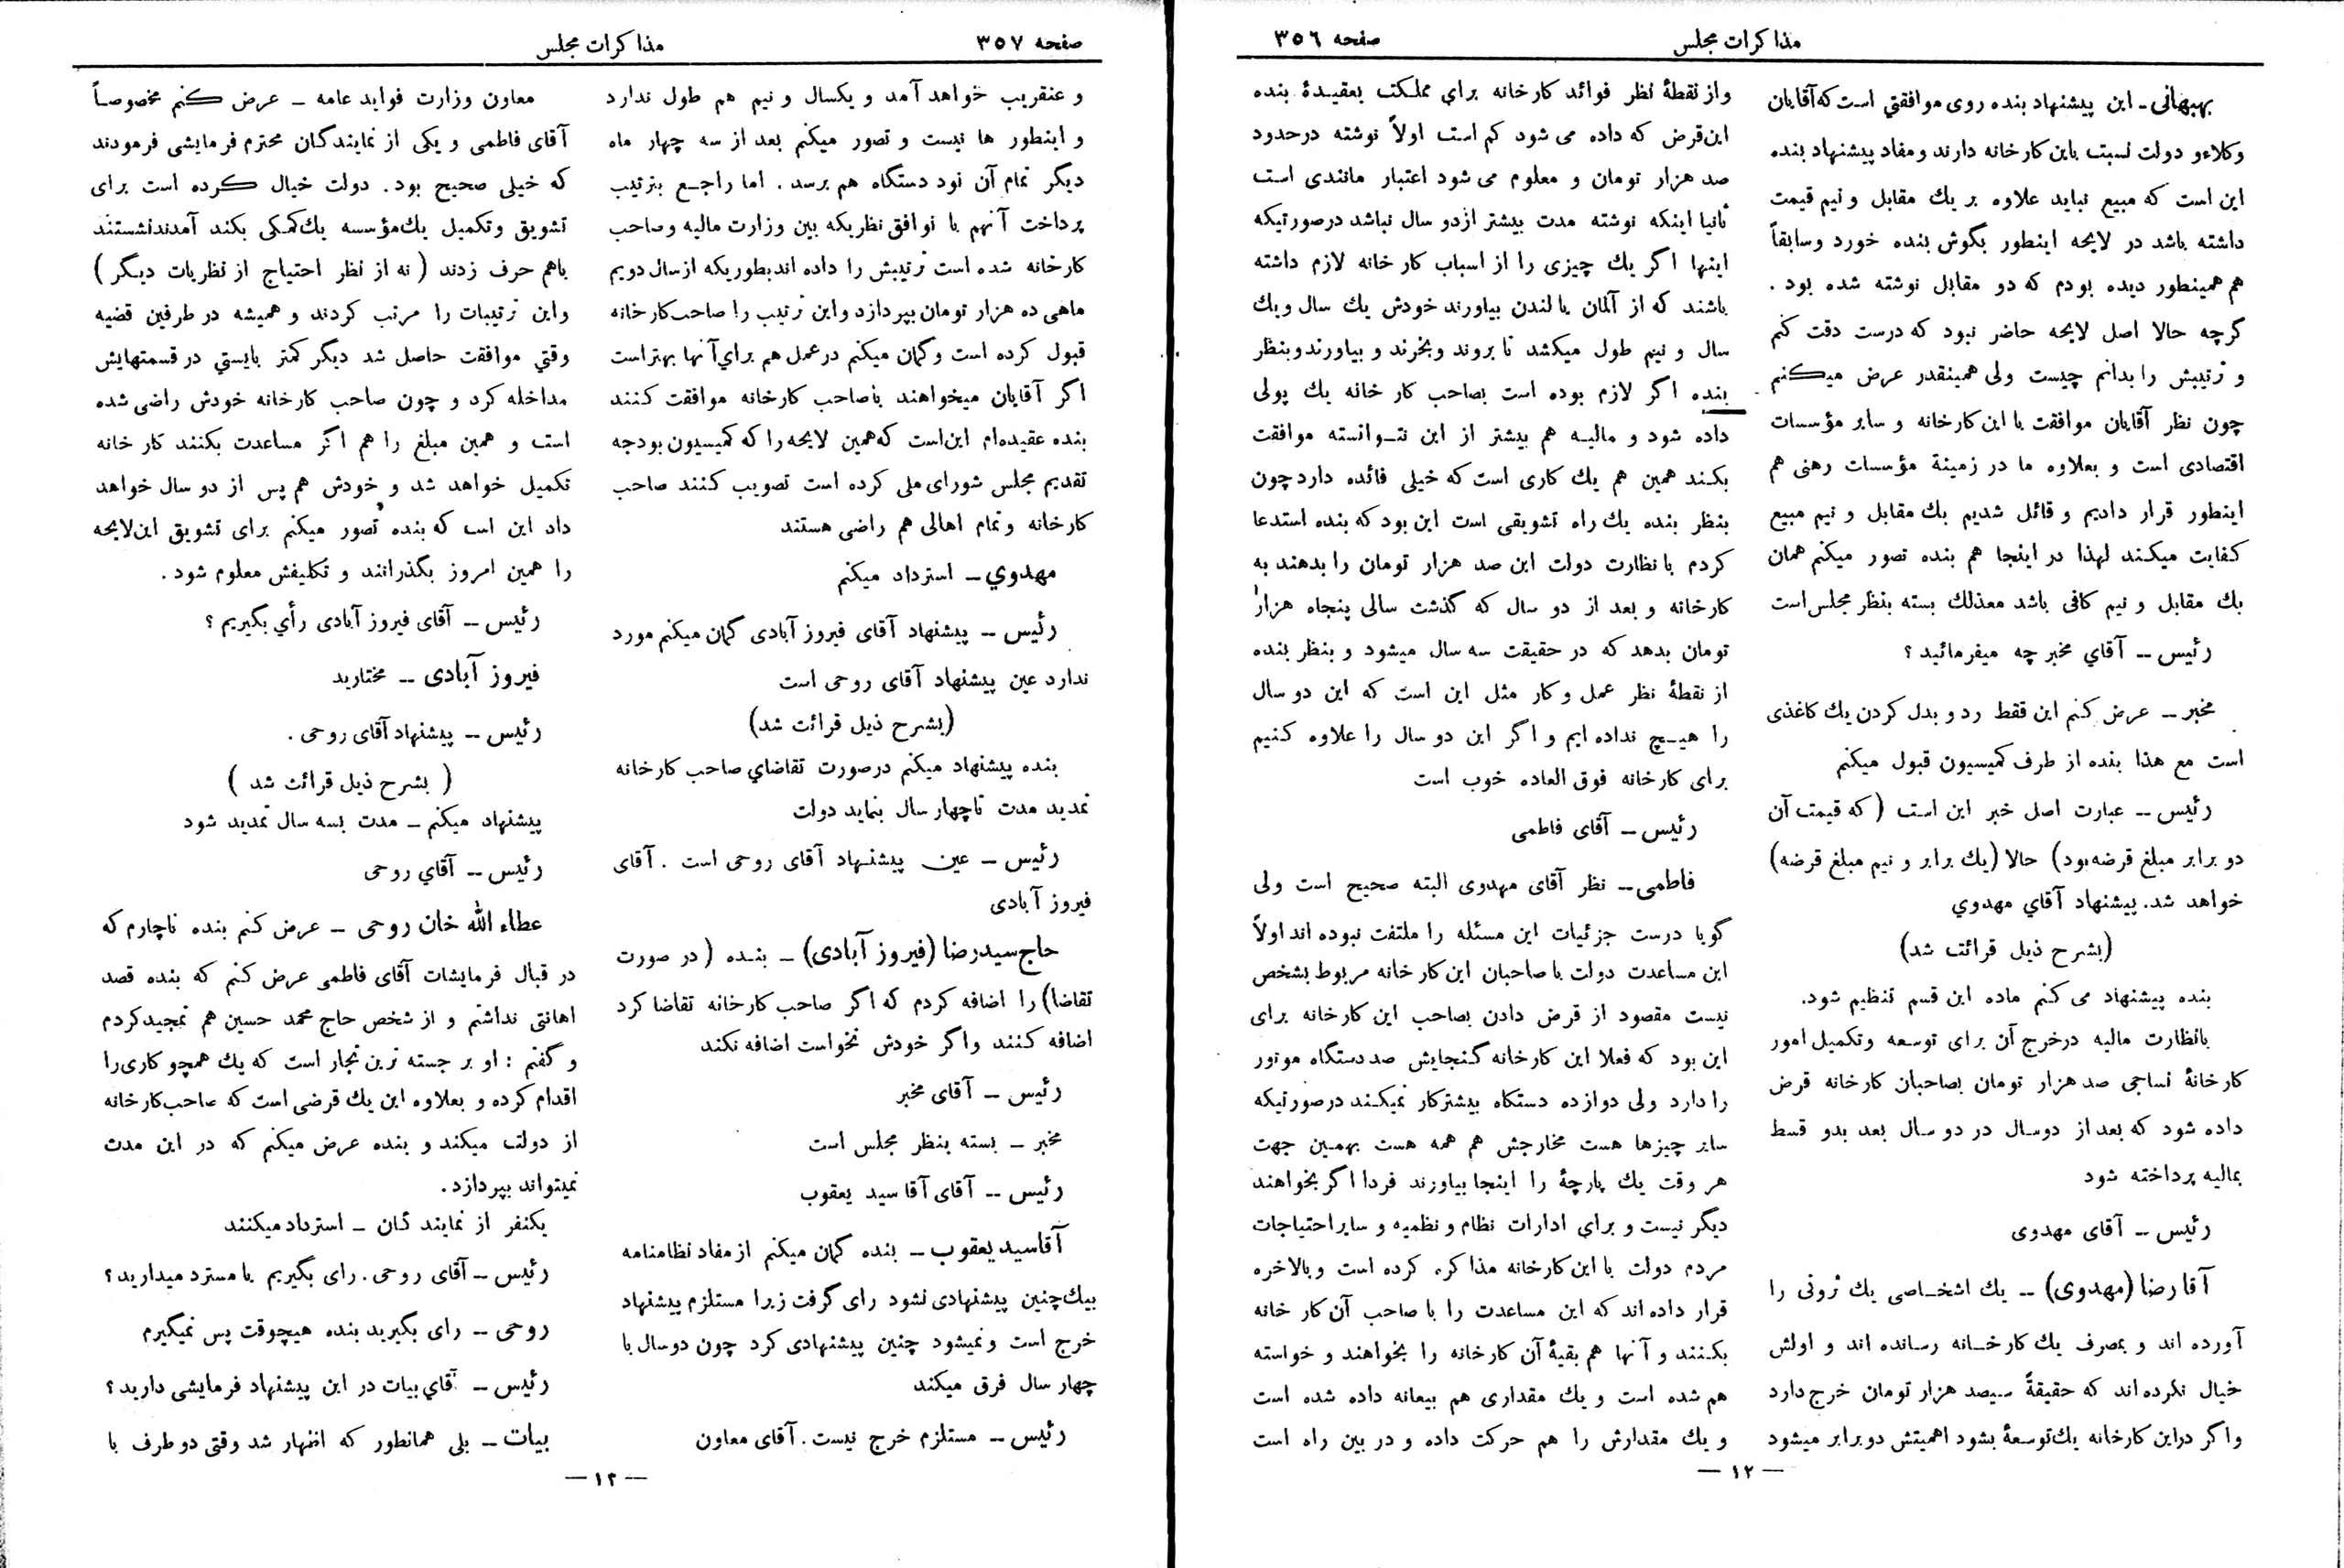 صفحه ٣٥٦
مذاکرات مجلس
بهبهانی ـ این پیشنهاد بنده روی موافقتی است که آقایان
وکلاء و دولت نسبت باین کارخانه دارند و مفاد پیشنهاد بنده
این است که مبیع نباید علاوه بر یك مقابل و نیم قیمت
داشته باشد در لایحه اینطور بگوش بنده خورد و سابقاً
هم همینطور دیده بودم که دو مقابل نوشته شده بود .
گرچه حالا اصل لایحه حاضر نبود که درست دقت کنم
و ترتیبش را بدانم چیست ولی همینقدر عرض میکنم
چون نظر آقایان موافقت با این کارخانه و سایر مؤسسات
اقتصادی است و بعلاوه ما در زمینة مؤسسات رهنی هم
اینطور قرار دادیم و قائل شدیم یك مقابل و نیم مبیع
کفایت میکند لهذا در اینجا هم بنده تصور میکنم همان
یك مقابل و نیم کافی باشد معذلك بسته بنظر مجلس است
رئیس ــ آقاي مخبر چه میفرمائید ؟
مخبر ــ عرض کنم این فقط رد و بدل کردن یك کاغذی
است مع هذا بنده از طرف کمیسیون قبول میکنم
رئیس ــ عبارت اصل خبر این است ( که قیمت آن
دو برابر مبلغ قرضه بود) حالا (یك برابر و نیم مبلغ قرضه)
خواهد شد. پیشنهاد آقاي مهدوي
(بشرح ذیل قرائت شد)
بنده پیشنهاد می کنم ماده این قسم تنظیم شود.
بانظارت مالیه درخرج آن برای توسعه وتکمیل امور
کارخانهٔ نساجی صد هزار تومان بصاحبان کارخانه قرض
داده شود که بعد از دوسال در دو سال بعد بدو قسط
بمالیه پرداخته شود
رئیس ــ آقای مهدوی
آقا رضا (مهدوی) ــ یك اشخـاصی یك ثروتی را
آورده اند و بمصرف یك کارخـانه رسـانده اند و اولش
خیال نکرده اند که حقیقةً سـیصد هزار تومان خرج دارد
و اگر در این کارخانه یك توسعهٔ بشود اهمیتش دو برابر میشود
و از نقطهٔ نظر فوائد کارخانه براي مملکت بعقیدهٔ بنده
این قرض که داده می شود کم است اولاً نوشته درحدود
صد هزار تومان و معلوم می شود اعتبار مانندی است
ثانیا اینکه نوشته مدت بیشتر از دو سال نباشد درصورتیکه
اینها اگر یك چیزی را از اسباب کار خانه لازم داشته
باشند که از آلمان یا لندن بیاورند خودش یك سال ویك
سال و نیم طول میکشد تا بروند و بخرند و بیاورند و بنظر
بنده اگر لازم بوده است بصاحب کار خانه یك پولی
داده شود و مالیـه هم بیشتر از این نتـوانسته موافقت
بکـند همین هم یك کاری است که خیلی فائده دارد چون
بنظر بنده یك راه تشویقی است این بود که بنده استدعا
کردم با نظارت دولت این صد هزار تومان را بدهند به
کارخانه و بعد از دو سال که گذشت سالی پنجاه هزار
تومان بدهد که در حقیقت سه سال میشود و بنظر بنده
از نقطهٔ نظر عمل و کار مثل این است که این دو سال
را هیـچ نداده ایم و اگر این دو سال را علاوه کنیم
برای کارخانه فوق العاده خوب است
رئیس ــ آقای فاطمی
فاطمی ــ نظر آقای مهدوی البته صحیح است ولی
گویا درست جزئیات این مسئله را ملتفت نبوده اند اولاً
این مساعدت دولت با صاحبان این کارخانه مربوط بشخص
نیست مقصود از قرض دادن بصاحب این کارخانه برای
این بود که فعلا این کارخانه گنجایش صد دستگاه موتور
را دارد ولی دوازده دستگاه بیشتر کار نمیکـند درصورتیکه
سایر چیزها هست مخارجش هم همه هست بهمـین جهت
هر وقت یك پارچهٔ را اینجا بیاورند فردا اگر بخواهند
دیگر نیست و براي ادارات نظام و نظمیه و سایر احتیاجات
مردم دولت با این کارخانه مذاکره کرده است و بالاخره
قرار داده اند که این مساعدت را با صاحب آن کار خانه
بکـنند و آنها هم بقیهٔ آن کارخانه را بخواهند و خواسته
هم شده است و یك مقداری هم بیعانه داده شده است
و یك مقدارش را هم حرکت داده و در بین راه است
— ۱۲ —
صفحه ٣٥٧
مذاکرات مجلس
و عنقریب خواهد آمد و یکسال و نیم هم طول ندارد
و اینطور ها نیست و تصور میکنم بعد از سه چهار ماه
دیگر تمام آن نود دستگاه هم برسد . اما راجـع بترتیب
پرداخت آنهم با توافق نظریکه بین وزارت مالیه و صاحب
کارخانه شده است ترتیبش را داده اند بطوریکه از سال دویم
ماهی ده هزار تومان بپردازد و این ترتیب را صاحب کارخانه
قبول کرده است و گمان میکنم در عمل هم براي آنها بهتر است
اگر آقایان میخواهند با صاحب کارخانه موافقت کـنند
بنده عقیده‌ام این است که همین لایحه را که کمیسیون بودجه
تقدیم مجلس شورای ملی کرده است تصویب کـنند صاحب
کارخانه و تمام اهالی هم راضی هستند
مهدوي ــ استرداد میکنم
رئیس ــ پیشنهاد آقای فیروز آبادی گمان میکنم مورد
ندارد عین پیشنهاد آقای روحی است
(بشرح ذیل قرائت شد)
بنده پیشنهاد میکنم درصورت تقاضاي صاحب کارخانه
تمدید مدت تاچهار سال بنماید دولت
رئیس ــ عین پیشنهاد آقای روحی است . آقای
فیروز آبادی
حاج سید رضا (فیروز آبادی) ــ بنـده ( در صورت
تقاضا) را اضافه کردم که اگر صاحب کارخانه تقاضا کرد
اضافه کـنند و اگر خودش نخواست اضافه نکند
رئیس ــ آقای مخبر
مخبر ــ بسته بنظر مجلس است
رئیس ــ آقای آقا سید یعقوب
آقا سید یعقوب ــ بنده گمان میکنم از مفاد نظامنامه
بیك چنین پیشنهادی نشود رای گرفت زیرا مستلزم پیشنهاد
خرج است و نمیشود چنین پیشنهادی کرد چون دو سال با
چهار سال فرق میکند
رئیس ــ مستلزم خرج نیست . آقای معاون
معاون وزارت فواید عامه ــ عرض کنم مخصوصـاً
آقای فاطمی و یکی از نمایندگان محترم فرمایشی فرمودند
که خیلی صحیح بود. دولت خیال کرده است برای
تشویق و تکمیل یك مؤسسه یك کمکی بکند آمدند نشستند
باهم حرف زدند ( نه از نظر احتیاج از نظریات دیگر )
و این ترتیبات را مرتب کردند و همیشه در طرفین قضیه
وقتي موافقت حاصل شد دیگر کمتر بایستي در قسمتهایش
مداخله کرد و چون صاحب کارخانه خودش راضی شده
است و همین مبلغ را هم اگر مساعدت بکنند کار خانه
تکمیل خواهد شد و خودش هم پس از دو سال خواهد
داد این است که بنده تصور میکنم برای تشویق این لایحه
را همین امروز بگذرانند و تکلیفش معلوم شود .
رئیس ــ آقای فیروز آبادی رأي بگیریم ؟
فیروز آبادی ــ مختارید
رئیس ــ پیشنهاد آقای روحی .
( بشرح ذیل قرائت شد )
پیشنهاد میکنم ــ مدت بسه سال تمدید شود
رئیس ــ آقاي روحی
عطاء الله خان روحی ــ عرض کنم بنده ناچارم که
در قبال فرمایشات آقای فاطمی عرض کنم که بنده قصد
اهانتی نداشتم و از شخص حاج محمد حسین هم تمجید کردم
و گفتم : او بر جسته ترین تجار است که یك همچو کاری را
اقدام کرده و بعلاوه این یك قرضی است که صاحب کارخانه
از دولت میکند و بنده عرض میکنم که در این مدت
نمیتواند بپردازد.
یکنفر از نمایندگان ــ استرداد میکنند
رئیس ــ آقای روحی. رای بگیریم یا مسترد میدارید ؟
روحی ــ رای بگیرید بنده هیچوقت پس نمیگیرم
رئیس ــ آقاي بیات در این پیشنهاد فرمایشی دارید ؟
بیات ــ بلی همانطور که اظهار شد وقتی دو طرف با
— ۱۲ —